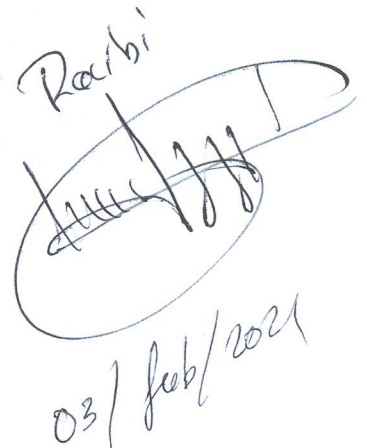 Recibi
03/feb/2021